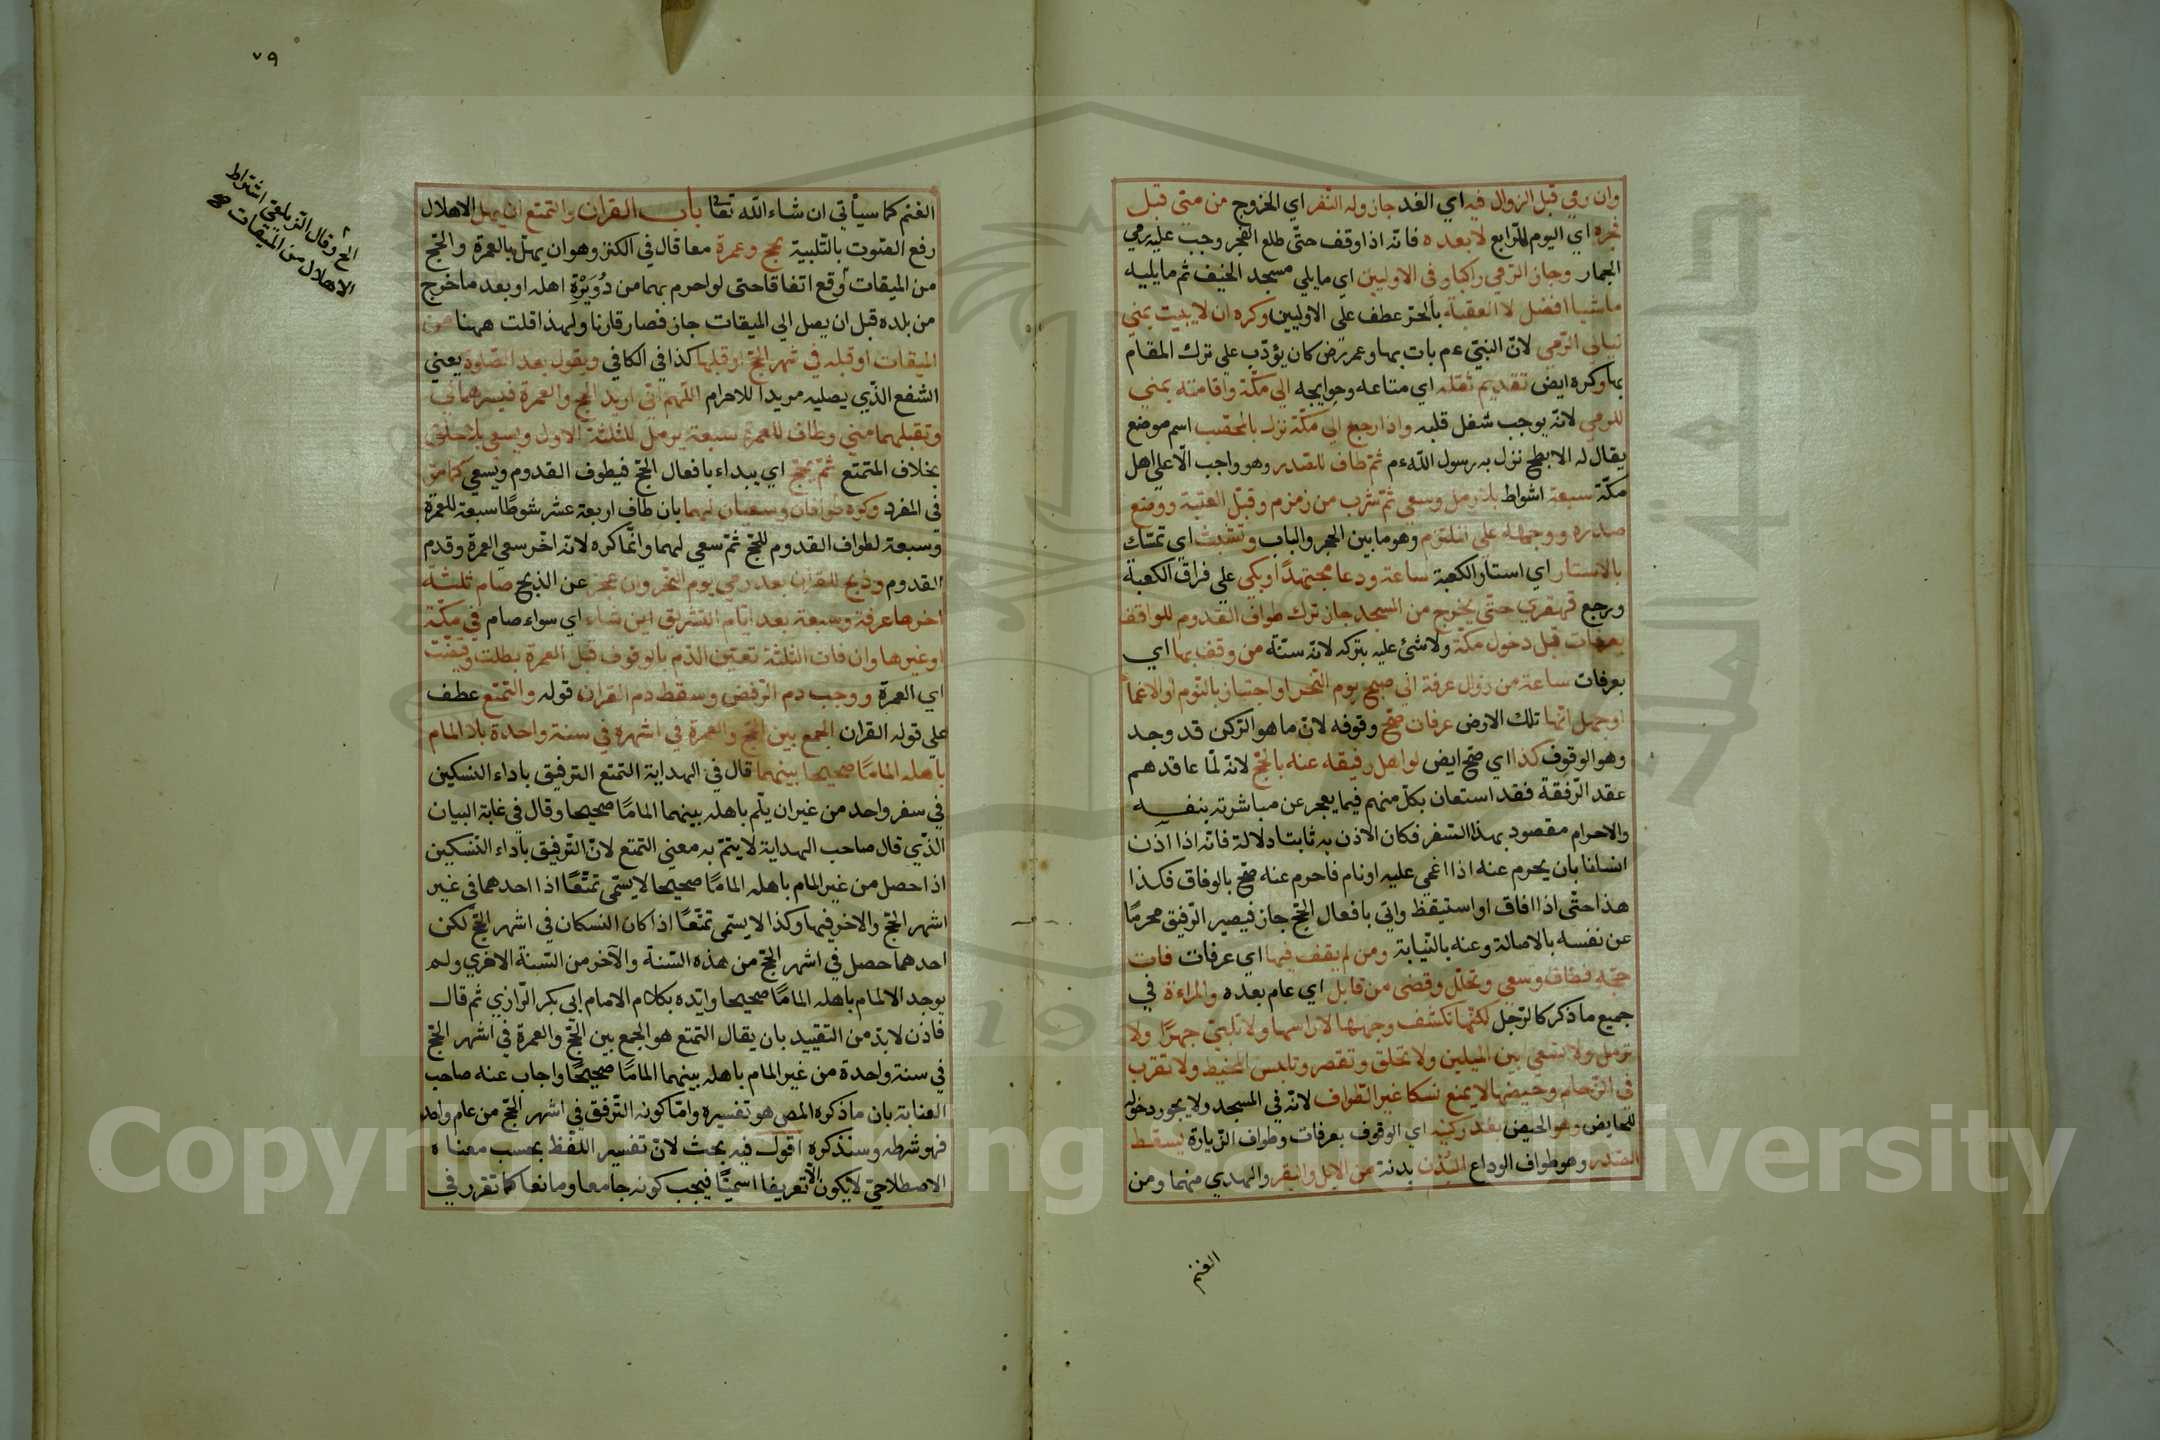 وان رمي قبل الزوال فيه اي الغد جاز وله النفر اي الخروج من منى قبل
فجره اي اليوم الرابع لا بعده فانه اذا وقف حتى طلع الفجر وجب عليه رمي
الجمار وجاز الرمي راكبا وفي الاوليين اي ما يلي مسجد الخيف ثم ما يليه
ماشيا افضل لا العقبة بالجر عطف على الاوليين وكره ان لا يبيت بمني
ليالي الرمي لان النبي عم بات بها وعمر رض كان يؤدب على ترك المقام
بها وكره ايض تقديم ثقله اي متاعه وحوايجه الي مكة واقامته بمني
للرمي لانه يوجب شغل قلبه واذا رجع الي مكة نزل بالمحصب اسم موضع
يقال له الابطح نزل به رسول الله ءم ثم طاف للصدر وهو واجب الا علي اهل
مكة سبعة اشواط بلا رمل وسعي ثم شرب من زمزم وقبل العتبة ووضع
صدره ووجهه علي الملتزم وهو ما بين الحجر والباب وتشبث اي تمسك
بالاستار اي استار الكعبة ساعة ودعا مجتهدا او بكي علي فراق الكعبة
ورجع قهقري حتى يخرج من المسجد جاز ترك طواف القدوم للواقف
بعرفات قبل دخول مكة ولا شئ عليه بتركه لانه سنة من وقف بها اي
بعرفات ساعة من زوال عرفة الي صبح يوم النحر او اجتاز بالنوم او الاغماء
او جهل انها تلك الارض عرفات صح وقوفه لان ما هو الركن قد وجد
وهو الوقوف كذا اي صح ايض لو اهل رفيقه عنه بالحج لانه لما عاقدهم
عقد الرفقة فقد استعان بكل منهم فيما يعجز عن مباشرته بنفسه
والاحرام مقصود بهذا السفر فكان الاذن به ثابتا دلالة فانه اذا اذن
انسانا بان يحرم عنه اذا اغمي عليه او نام فاحرم عنه صح بالوفاق فكذا
هذا حتى اذا افاق او استيقظ واتي بافعال الحج جاز فيصير الرفيق محرما
عن نفسه بالاصالة وعنه بالنيابة ومن لم يقف فيها اي عرفات فات
حجه فطاف وسعي وتحلل وقضى من قابل اي عام بعده والمراءة في
جميع ما ذكر كالرجل لكنها تكشف وجهها لا راسها ولا تلبي جهرا ولا
ترمل ولا تسعي بين الميلين ولا تحلق وتقصر وتلبس المخيط ولا تقرب
في الزحام وحيضها لا يمنع نسكا غير الطواف لانه في المسجد ولا يجوز دخوله
للحايض وهو الحيض بعد ركنيه اي الوقوف بعرفات وطواف الزيارة يسقط
الصدر وهو طواف الوداع البدن بدنة من الابل والبقر والهدي منهما ومن
الغنم
٧٩
الغنم كما سيأتي ان شاء الله تعا باب القران والتمتع ان يهل الاهلال
رفع الصوت بالتلبية بحج وعمرة معا قال في الكنز وهو ان يهل بالعمرة والحج
من الميقات وقع اتفاقا حتى لو احرم بهما من دويرة اهله او بعد ما خرج
من بلده قبل ان يصل الي الميقات جاز فصار قارنا ولهذا قلت ههنا من
الميقات او قبله في شهر الحج او قبلها كذا في الكافي ويقول بعد الصلوة يعني
الشفع الذي يصليه مريدا للاحرام اللهم اني اريد الحج والعمرة فيسرهما لي
وتقبلهما مني وطاف للعمرة سبعة يرمل للثلثة الاول ويسعي بلا حلق
بخلاف المتمتع ثم يحج اي يبداء بافعال الحج فيطوف القدوم ويسعي كما مر
في المفرد وكره طوافان وسعيان لهما بان طاف اربعة عشر شوطا سبعة للعمرة
وسبعة لطواف القدوم للحج ثم سعي لهما وانما كره لانه اخر سعي العمرة وقدم
القدوم وذبح للقران بعد رمي يوم النحر وان عجز عن الذبح صام ثلثة
اخرها عرفة وسبعة بعد ايام التشريق اين شاء اي سواء صام في مكة
او غيرها وان فات الثلثة تعين الدم بالوقوف قبل العمرة بطلت وقضيت
اي العمرة ووجب دم الرفض وسقط دم القران قوله والتمتع عطف
على قوله القران الجمع بين الحج والعمرة في اشهره في سنة واحدة بلا المام
باهله الماما صحيحا بينهما قال في الهداية التمتع الترفيق باداء النسكين
في سفر واحد من غير ان يلم باهله بينهما الماما صحيحا وقال في غاية البيان
الذي قال صاحب الهداية لا يتم به معني التمتع لان الترفيق باداء النسكين
اذا حصل من غير المام باهله الماما صحيحا لا يسمى تمتعا اذا احدهما في غير
اشهر الحج والاخر فيها وكذا لا يسمى تمتعا اذا كان النسكان في اشهر الحج لكن
احدهما حصل في اشهر الحج من هذه السنة والآخر من السنة الاخري ولم
يوجد الالمام باهله الماما صحيحا وايده بكلام الامام ابي بكر الرازي ثم قال
فاذن لا بد من التقييد بان يقال التمتع هو الجمع بين الحج والعمرة في اشهر الحج
في سنة واحدة من غير المام باهله بينهما الماما صحيحا واجاب عنه صاحب
العناية بان ما ذكره المص هو تفسيره واما كونه الترفق في اشهر الحج من عام واحد
فهو شرطه وسنذكره اقول فيه بحث لان تفسير اللفظ بحسب معناه
الاصطلاحي لا يكون الا تعريفا اسميا فيجب كونه جامعا ومانعا كما تقرر في
الخ وقال الزيلعي اشتراط
الاهلال من الميقات
Copyright © King Saud University